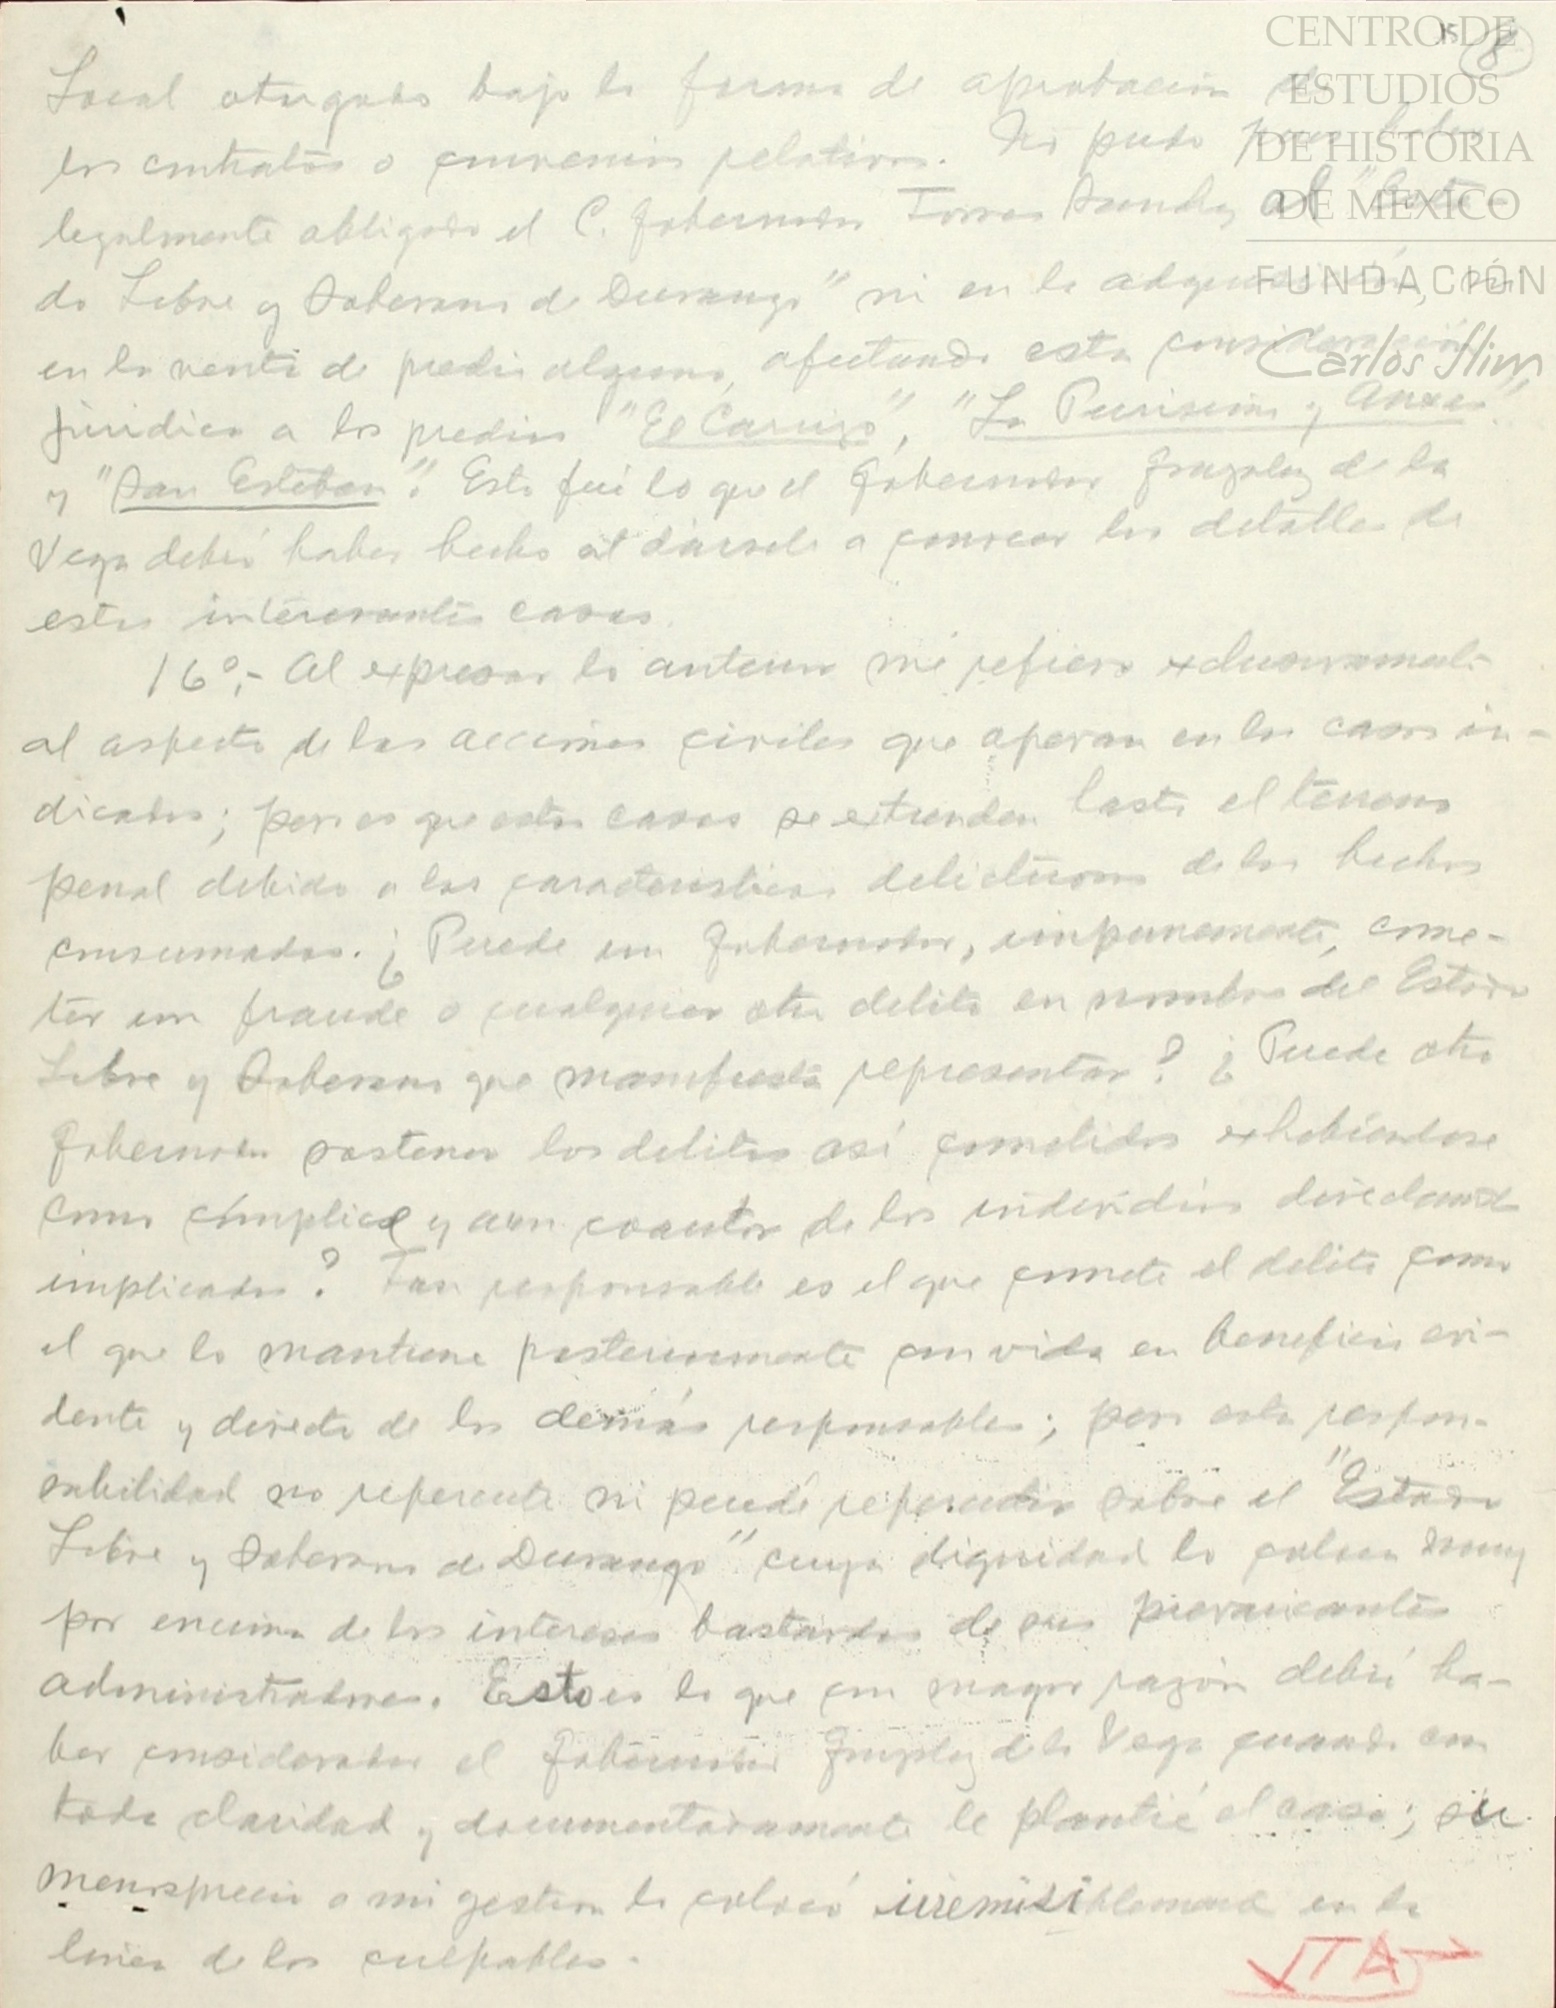 CENTRO DE
ESTUDIOS
DE HISTORIA
DE MÉXICO
FUNDACIÓN
Carlos Slim
15 8
Local otorgado bajo la forma de aprobación de
los contratos o convenios relativos. No pudo pues haber
legalmente obligado el C. Gobernador Torres al "Esta-
do Libre y Soberano de Durango" ni en la adquisición, ni
en la venta de predio alguno, afectando esta consideración
jurídica a los predios "El Carrizo", "La Purísima y Anexas"
y "San Esteban". Esto fué lo que el Gobernador González de la
Vega debió haber hecho al dársele a conocer los detalles de
estos interesantes casos.
16º.- Al expresar lo anterior me refiero exclusivamente
al aspecto de las acciones civiles que operan en los casos in-
dicados; pero es que estos casos se extienden hasta el terreno
penal debido a las características delictuosas de los hechos
consumados. ¿Puede un Gobernador, impunemente, come-
ter un fraude o cualquier otro delito en nombre del Estado
Libre y Soberano que manifiesta representar? ¿Puede otro
Gobernador sostener los delitos así cometidos exhibiéndose
como cómplice y aun coautor de los individuos directamente
implicados? Tan responsable es el que comete el delito como
el que lo mantiene posteriormente con vida en beneficio evi-
dente y directo de los demás responsables; pero esta respon-
sabilidad no repercute ni puede repercutir sobre el "Estado
Libre y Soberano de Durango" cuya dignidad lo coloca muy
por encima de los intereses bastardos de sus prevaricantes
administradores. Esto es lo que con mayor razón debió ha-
ber considerado el Gobernador González de la Vega cuando con
toda claridad y documentadamente le plantié el caso; su
menosprecio a mi gestión lo colocó irremisiblemente en la
línea de los culpables.-
JTA